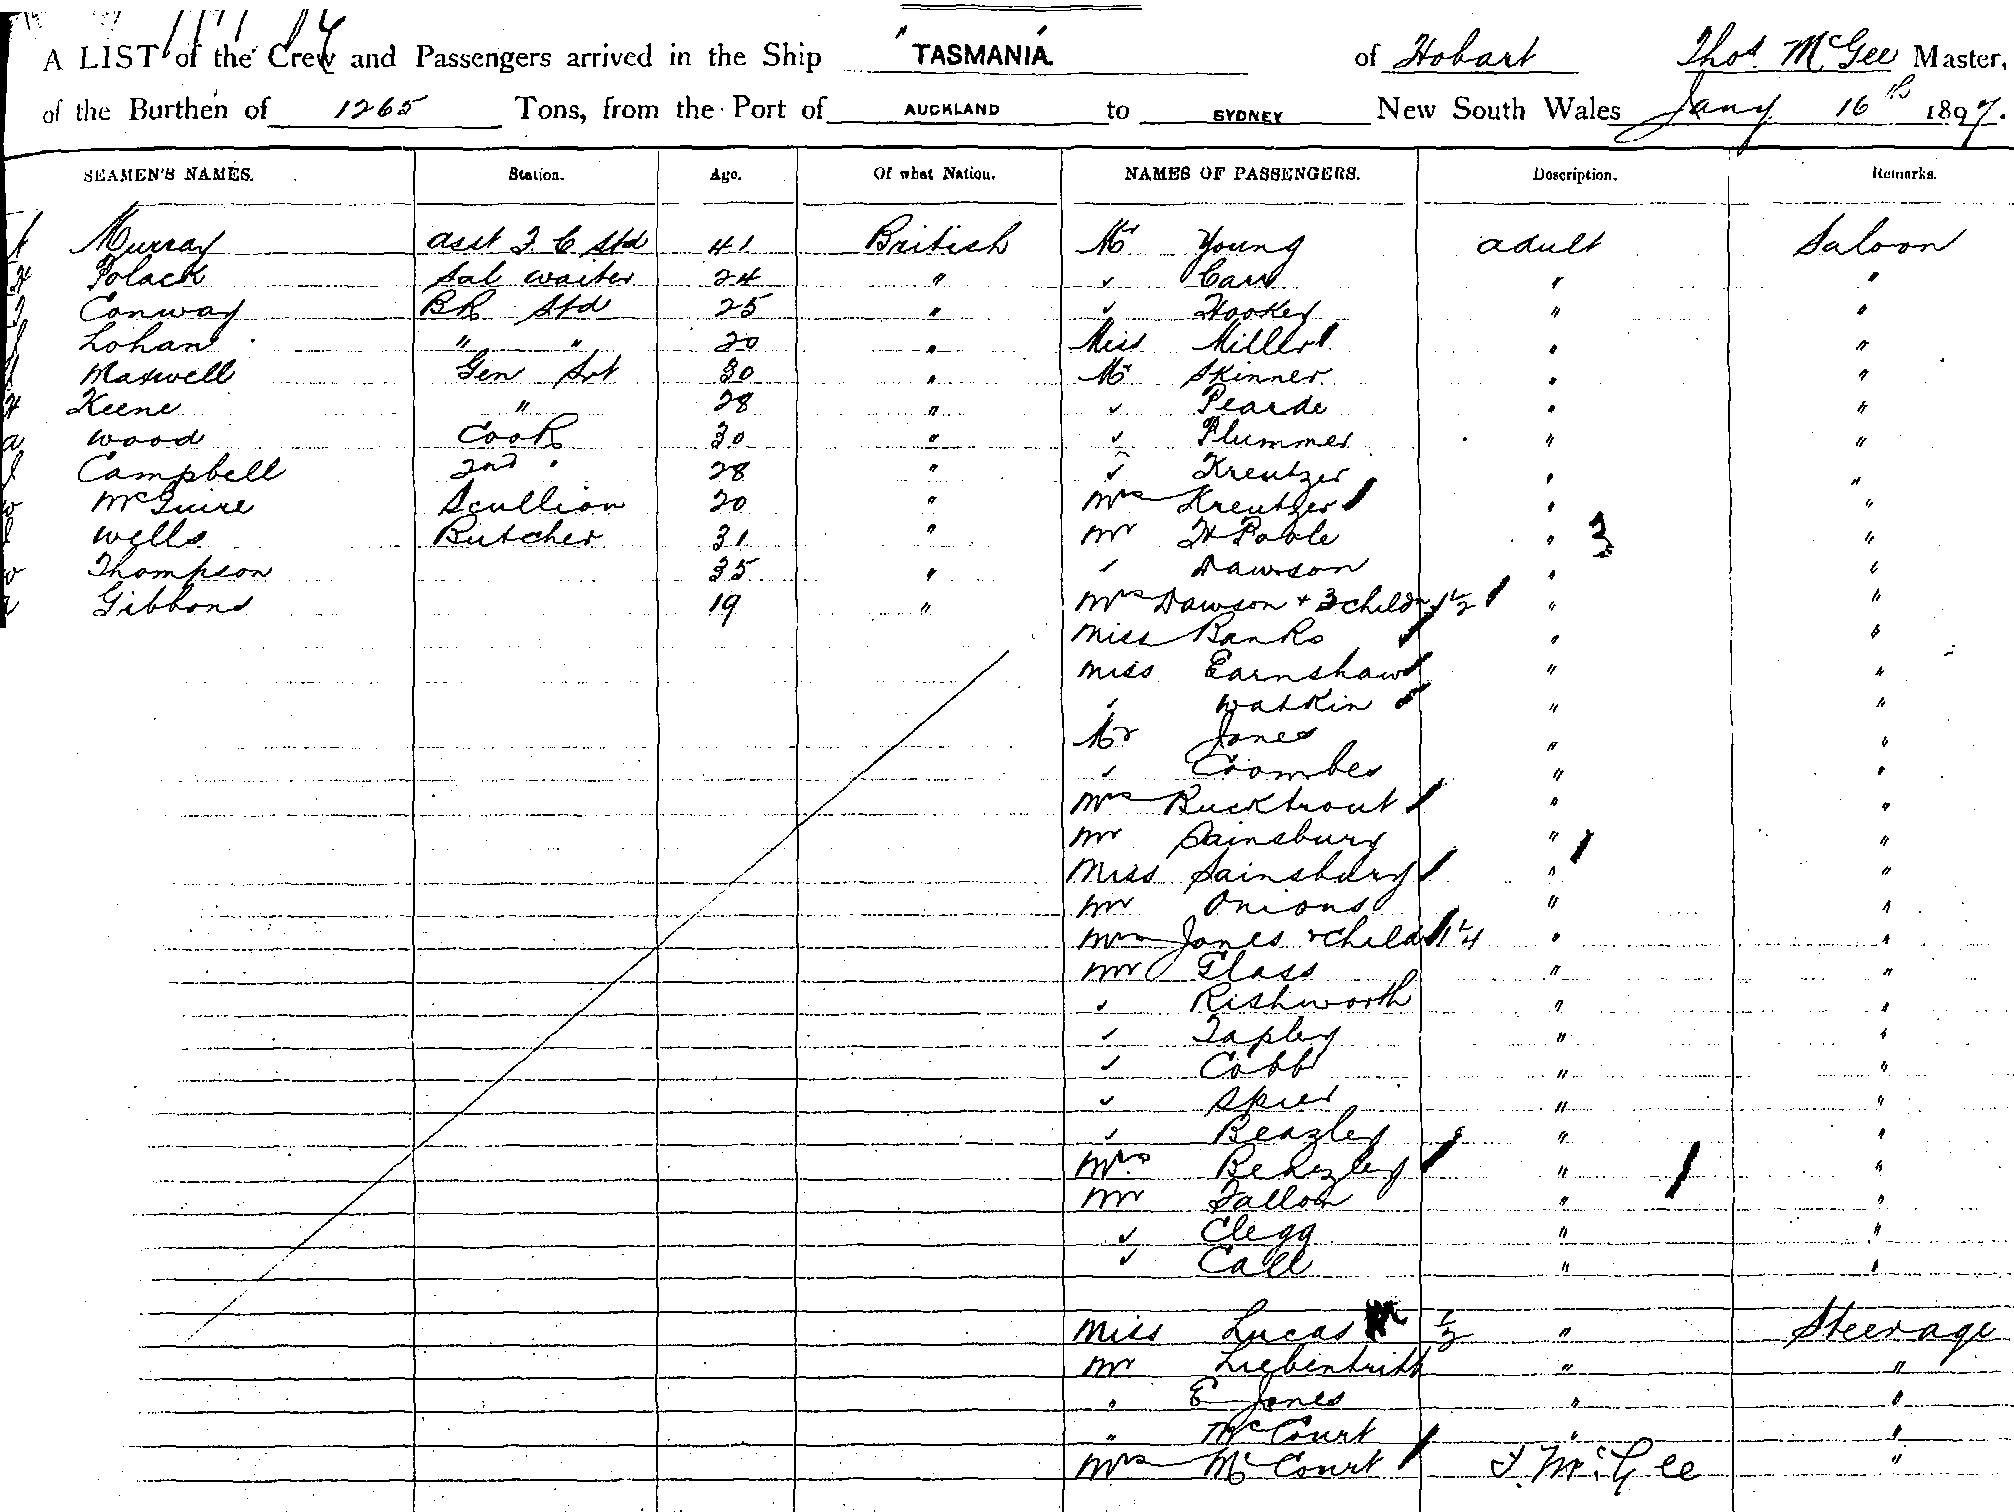 A LIST of the Crew and Passengers arrived in the Ship "TASMANIA" of Hobart Thos. McGee Master,
of the Burthen of 1265 Tons, from the Port of AUCKLAND to SYDNEY New South Wales Jany 16th 1897.
SEAMEN'S NAMES. Station. Age. Of what Nation. NAMES OF PASSENGERS. Description. Remarks.
Murray asst F. C Std 41 British Mr Young adult Saloon
H Polack Sal waiter 24 " " Carr " "
Conway BR Std 25 " " Hooker " "
Lohan " " 20 " Miss Miller " "
Maxwell Gen Srt 30 " Mr Skinner " "
H Keene " 28 " " Pearde " "
a Wood Cook 30 " " Plummer " "
Campbell 2nd " 28 " " Kreutzer " "
McGuire Scullion 20 " Mrs Kreutzer " "
Wells Butcher 31 " Mr H Poole " 3 "
Thompson 35 " " Dawson " "
Gibbons 19 " Mrs Dawson + 3 childn 1 1/2 " "
Miss Banks " "
Miss Earnshaw " "
" Watkin " "
Mr Jones " "
" Coombes " "
Mrs Bucktrout " "
Mr Sainsbury " "
Miss Sainsbury " "
Mr Onions " "
Mrs Jones + child 1 1/4 " "
Mr Glass " "
" Rishworth " "
" Tapley " "
" Cobb " "
" Spier " "
" Beazley " "
Mrs Beazley " "
Mr Fallon " "
" Clegg " "
" Call " "
Miss Lucas 1/2 " Steerage
Mr Liebentritt " "
" E Jones " "
" McCourt " "
Mrs McCourt T. McGee "